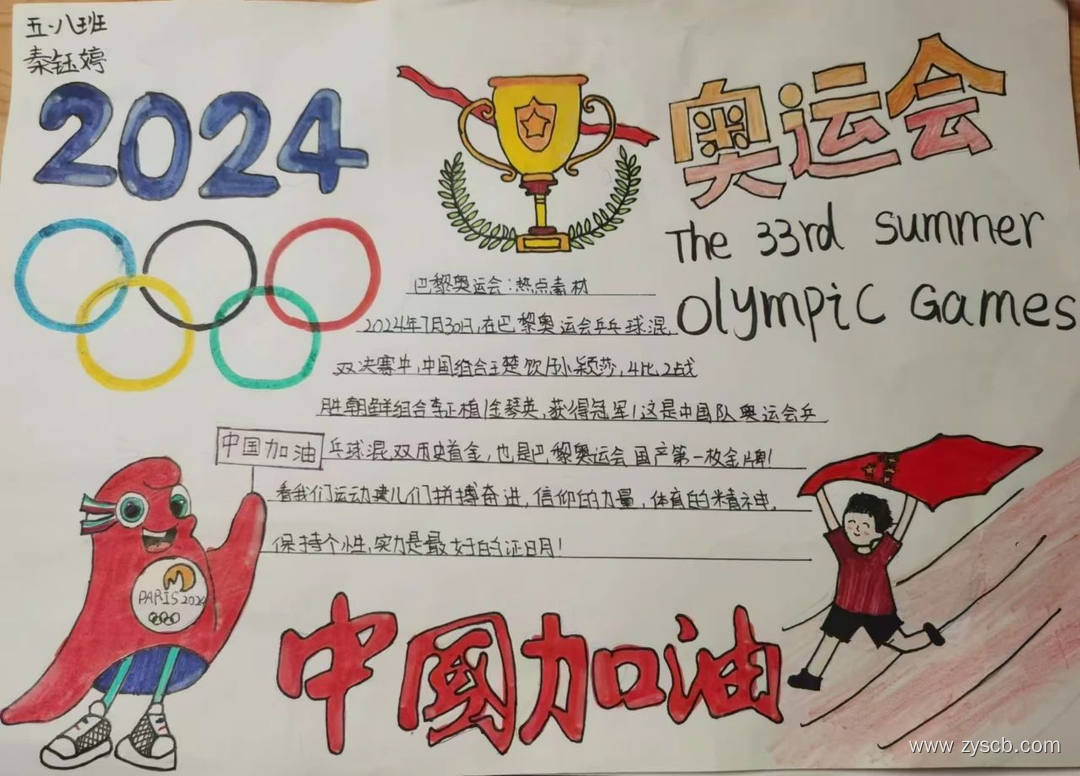 五·八班
秦钰婷
2024
奥运会
The 33rd summer
Olympic Games
巴黎奥运会:热点素材
2024年7月30日,在巴黎奥运会乒乓球混
双决赛中,中国组合王楚钦/孙颖莎,4比2战
胜朝鲜组合李正植/金琴英,获得冠军!这是中国队奥运会乒
乓球混双历史首金,也是巴黎奥运会国产第一枚金牌!
看我们运动健儿们拼搏奋进,信仰的力量,体育的精神,
保持个性,实力是最好的证明!
中国加油
PARIS 2024
中國加油
www.zyscb.com